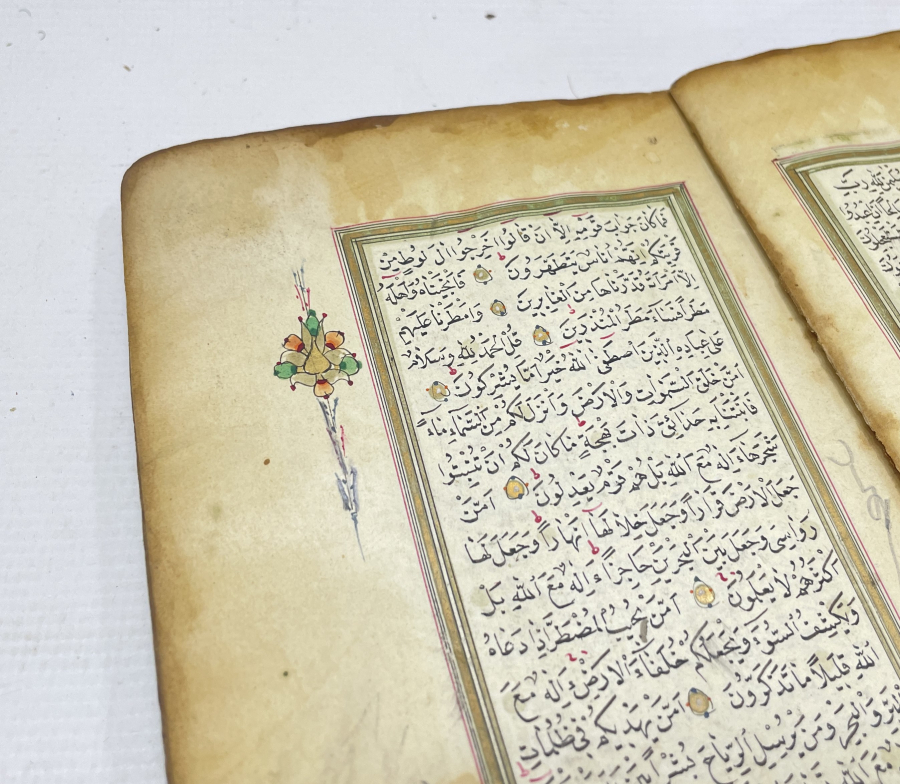 فَمَا كَانَ جَوَابَ قَوْمِهِ اِلَّا اَنْ قَالُوا اَخْرِجُوا اٰلَ لُوطٍ مِنْ
قَرْيَتِكُمْ اِنَّهُمْ اُنَاسٌ يَتَطَهَّرُونَ فَاَنْجَيْنَاهُ وَاَهْلَهُ
اِلَّا امْرَاَتَهُ قَدَّرْنَاهَا مِنَ الْغَابِرِينَ وَاَمْطَرْنَا عَلَيْهِمْ
مَطَرًا فَسَاءَ مَطَرُ الْمُنْذَرِينَ قُلِ الْحَمْدُ لِلّٰهِ وَسَلَامٌ
عَلٰى عِبَادِهِ الَّذِينَ اصْطَفٰى اَللّٰهُ خَيْرٌ اَمَّا يُشْرِكُونَ
اَمَّنْ خَلَقَ السَّمٰوٰتِ وَالْاَرْضَ وَاَنْزَلَ لَكُمْ مِنَ السَّمَاءِ مَاءً
فَاَنْبَتْنَا بِهِ حَدَائِقَ ذَاتَ بَهْجَةٍ مَا كَانَ لَكُمْ اَنْ تُنْبِتُوا
شَجَرَهَا ءَاِلٰهٌ مَعَ اللّٰهِ بَلْ هُمْ قَوْمٌ يَعْدِلُونَ اَمَّنْ
جَعَلَ الْاَرْضَ قَرَارًا وَجَعَلَ خِلَالَهَا اَنْهَارًا وَجَعَلَ لَهَا
رَوَاسِيَ وَجَعَلَ بَيْنَ الْبَحْرَيْنِ حَاجِزًا ءَاِلٰهٌ مَعَ اللّٰهِ بَلْ
اَكْثَرُهُمْ لَا يَعْلَمُونَ اَمَّنْ يُجِيبُ الْمُضْطَرَّ اِذَا دَعَاهُ
وَيَكْشِفُ السُّوءَ وَيَجْعَلُكُمْ خُلَفَاءَ الْاَرْضِ ءَاِلٰهٌ مَعَ
اللّٰهِ قَلِيلًا مَا تَذَكَّرُونَ اَمَّنْ يَهْدِيكُمْ فِى ظُلُمَاتِ
الْبَرِّ وَالْبَحْرِ وَمَنْ يُرْسِلُ الرِّيَاحَ بُشْرًا بَيْنَ